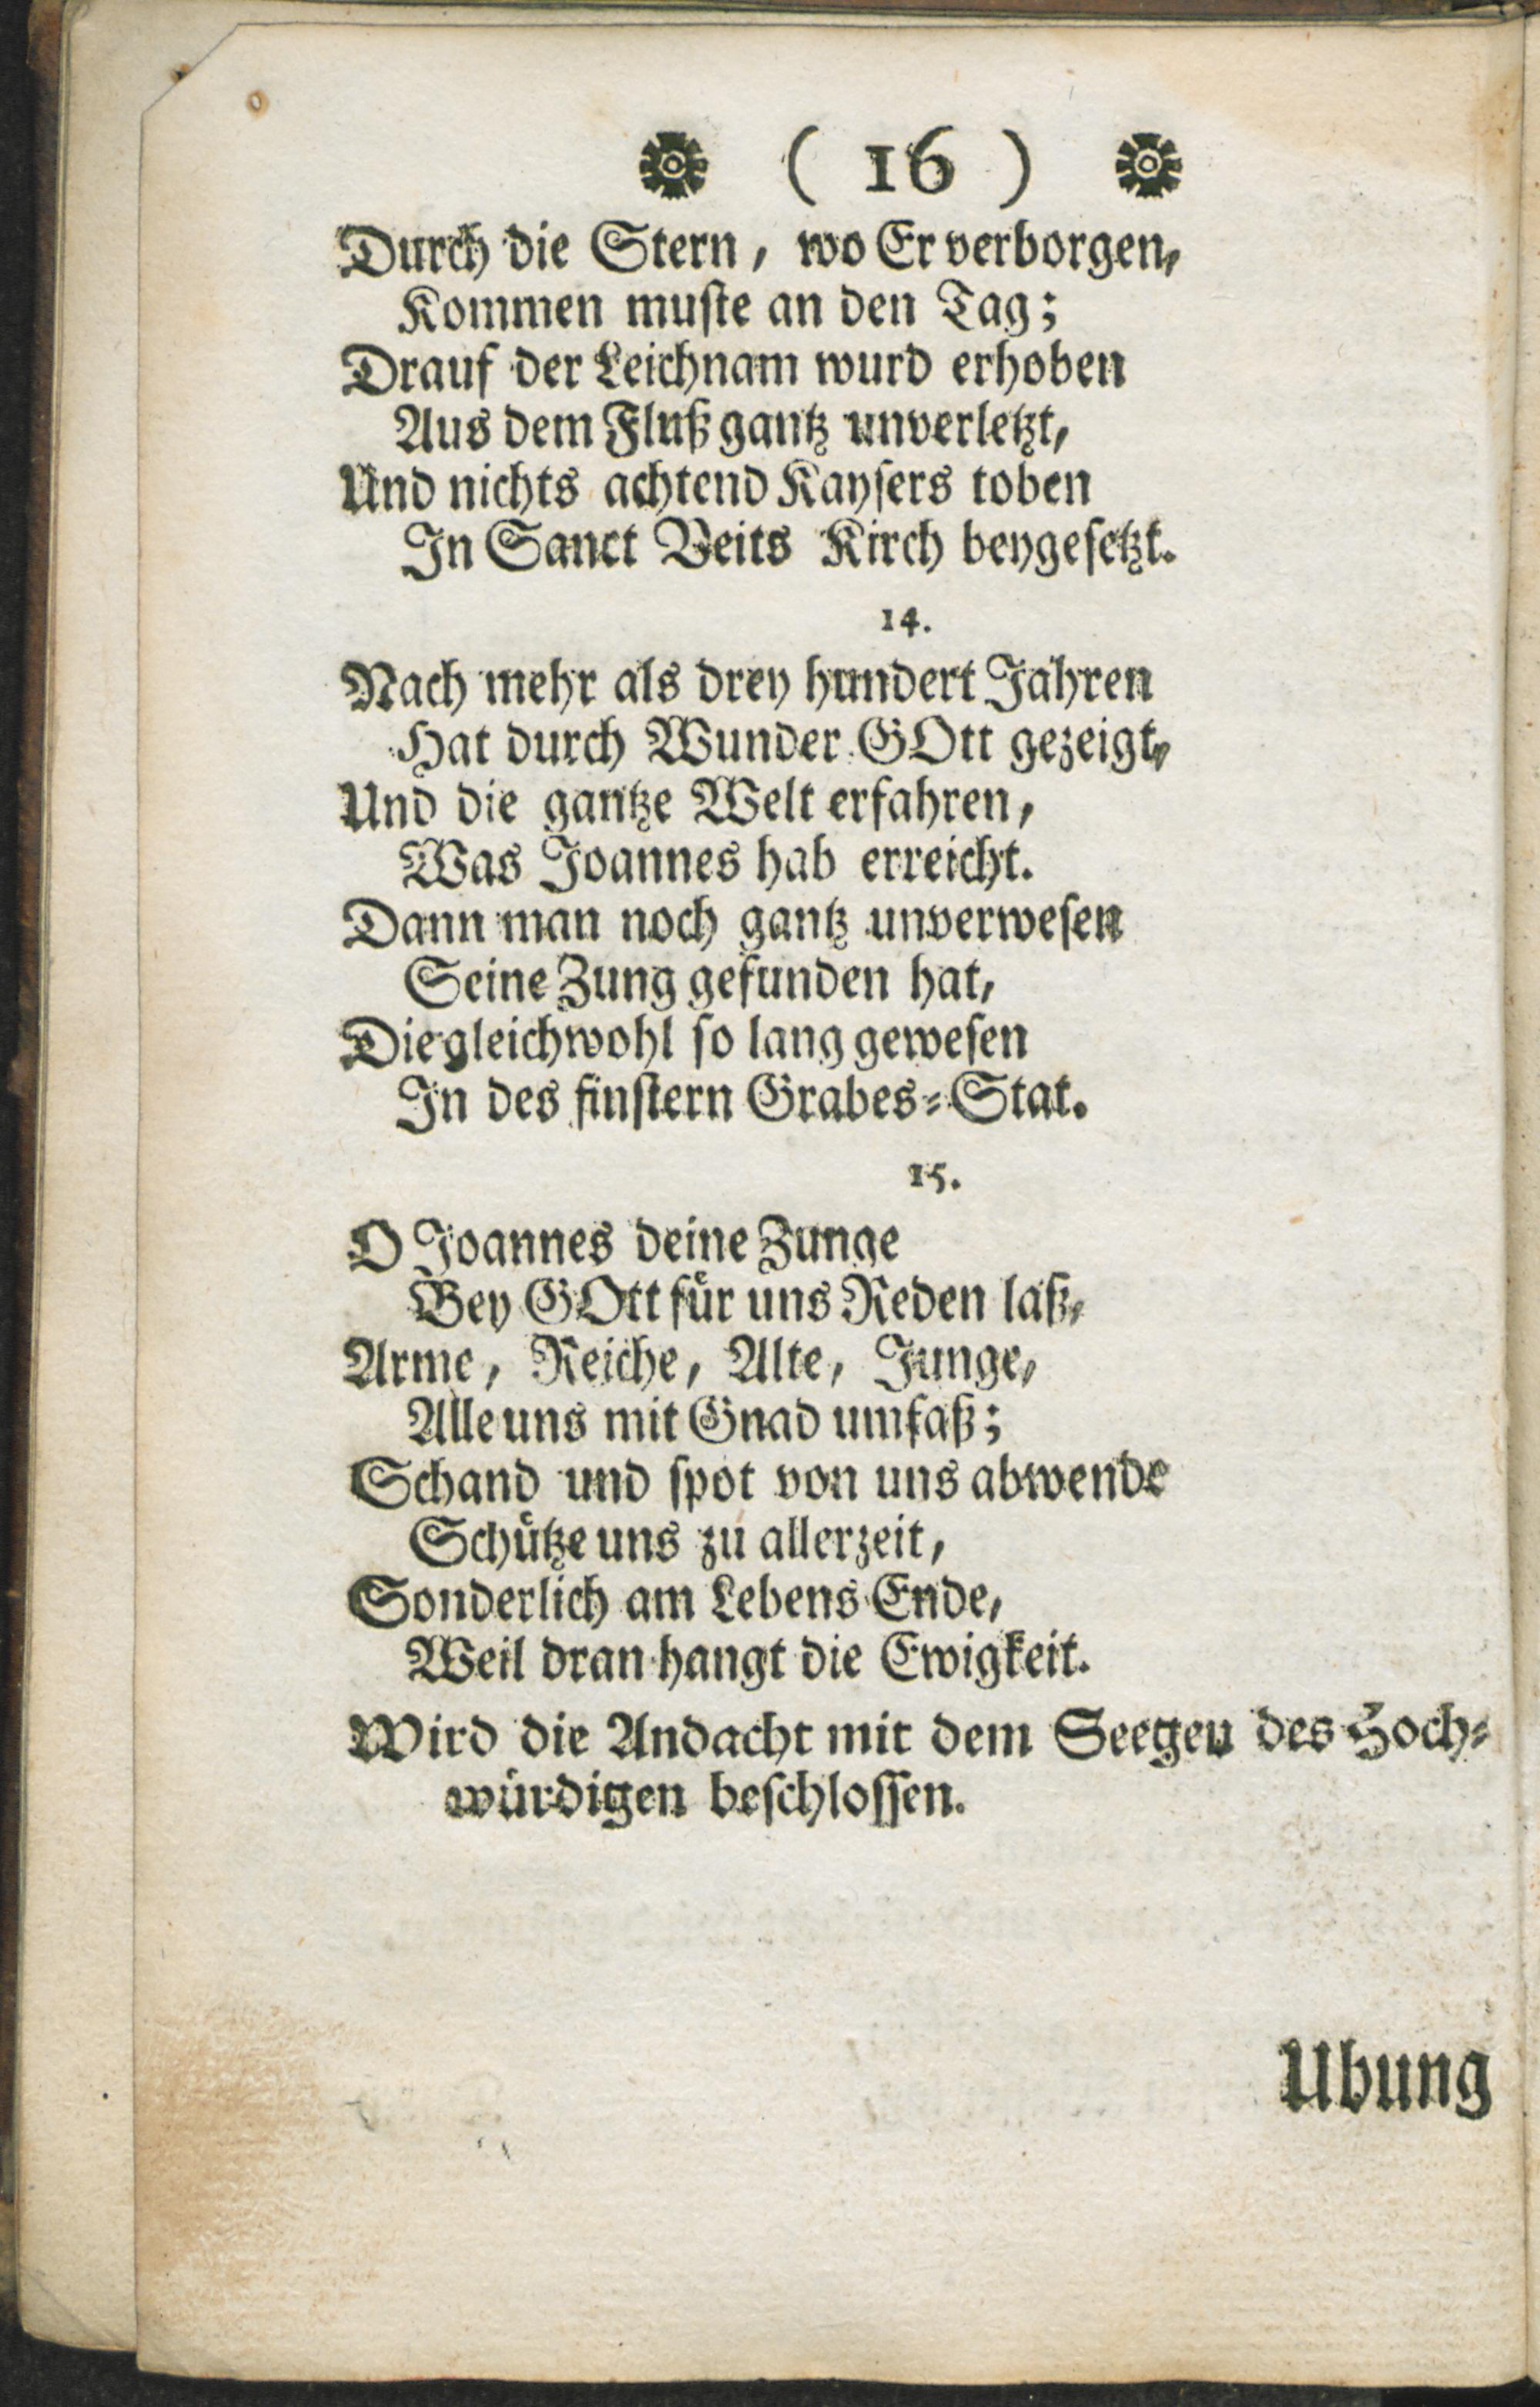 ( 16 )
Durch die Stern, wo Er verborgen,
Kommen muste an den Tag;
Drauf der Leichnam wurd erhoben
Aus dem Fluß gantz unverletzt,
Und nichts achtend Kaysers toben
In Sanct Veits Kirch beygesetzt.
14.
Nach mehr als drey hundert Jahren
Hat durch Wunder GOtt gezeigt,
Und die gantze Welt erfahren,
Was Joannes hab erreicht.
Dann man noch gantz unverwesen
Seine Zung gefunden hat,
Die gleichwohl so lang gewesen
In des finstern Grabes-Stat.
15.
O Joannes deine Zunge
Bey GOtt für uns Reden laß,
Arme, Reiche, Alte, Junge,
Alle uns mit Gnad umfaß;
Schand und spot von uns abwende
Schütze uns zu allerzeit,
Sonderlich am Lebens Ende,
Weil dran hangt die Ewigkeit.
Wird die Andacht mit dem Seegen des Hoch-
würdigen beschlossen.
Ubung